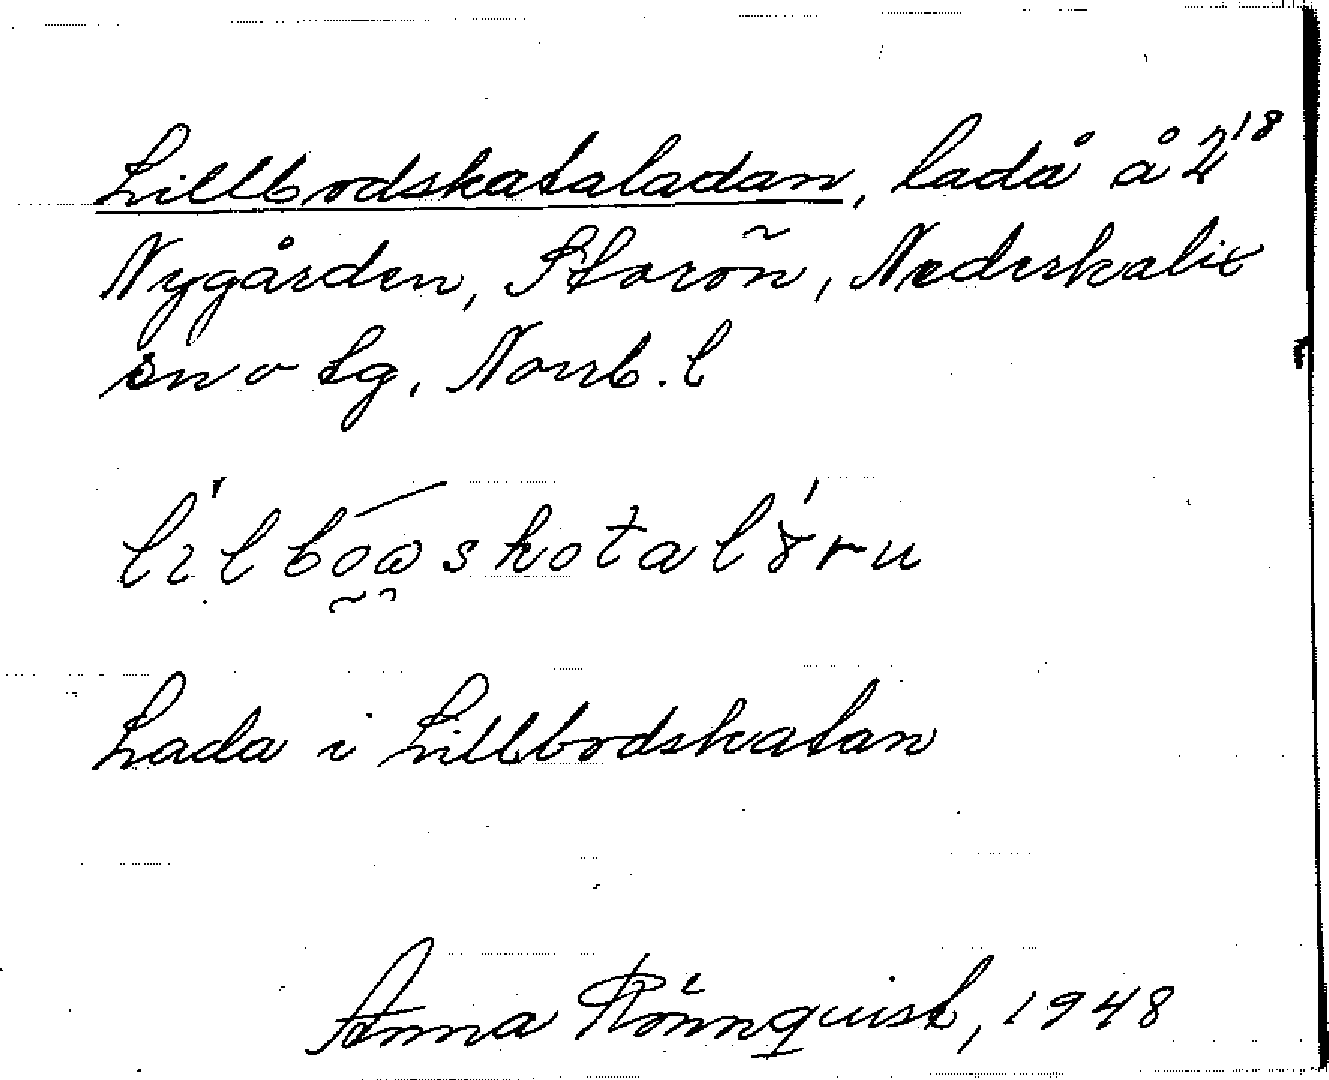 Lillbodskataladan, lada å 2¹⁸
Nygården, Storön, Nederkalix
sn o tg, Norrb. l
Lada i Lillbodskatan
Anna Rönnquist, 1948